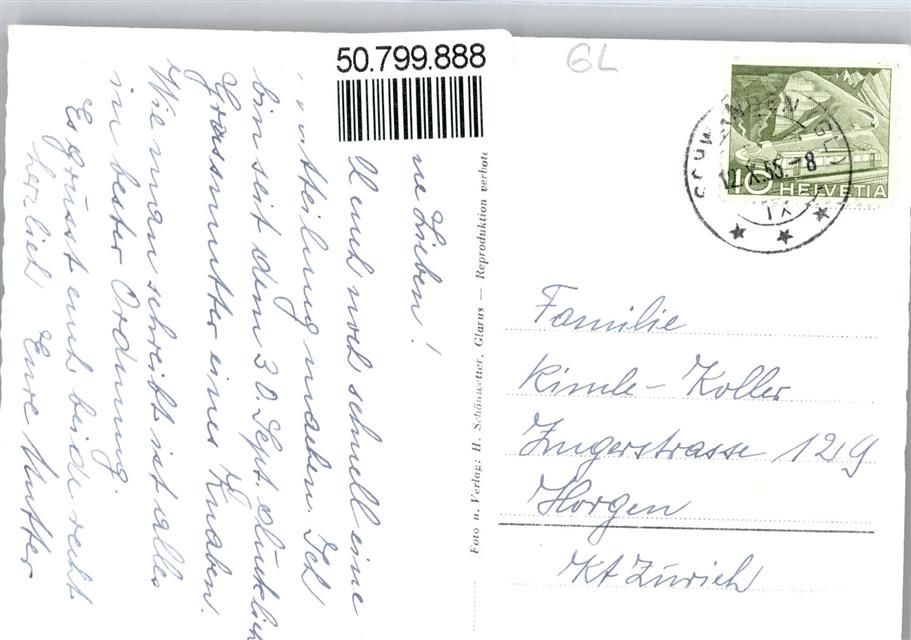 50.799.888
GL
SCHWANDEN (GL)
12.X.55.-8
IX
10 HELVETIA
ne Lieben!
Euch noch schnell eine
itteilung machen. Ich
bin seit dem 30. Sept. Glücklich
Grossmutter eines Knaben.
Wie man schreibt ist alles
in bester Ordnung.
Es grüsst euch beide recht
herzlich Eure Mutter
Foto u. Verlag: H. Schönwetter, Glarus — Reproduktion verbote
Familie
Kimle-Koller
Zugerstrasse 129
Horgen
Kt Zürich